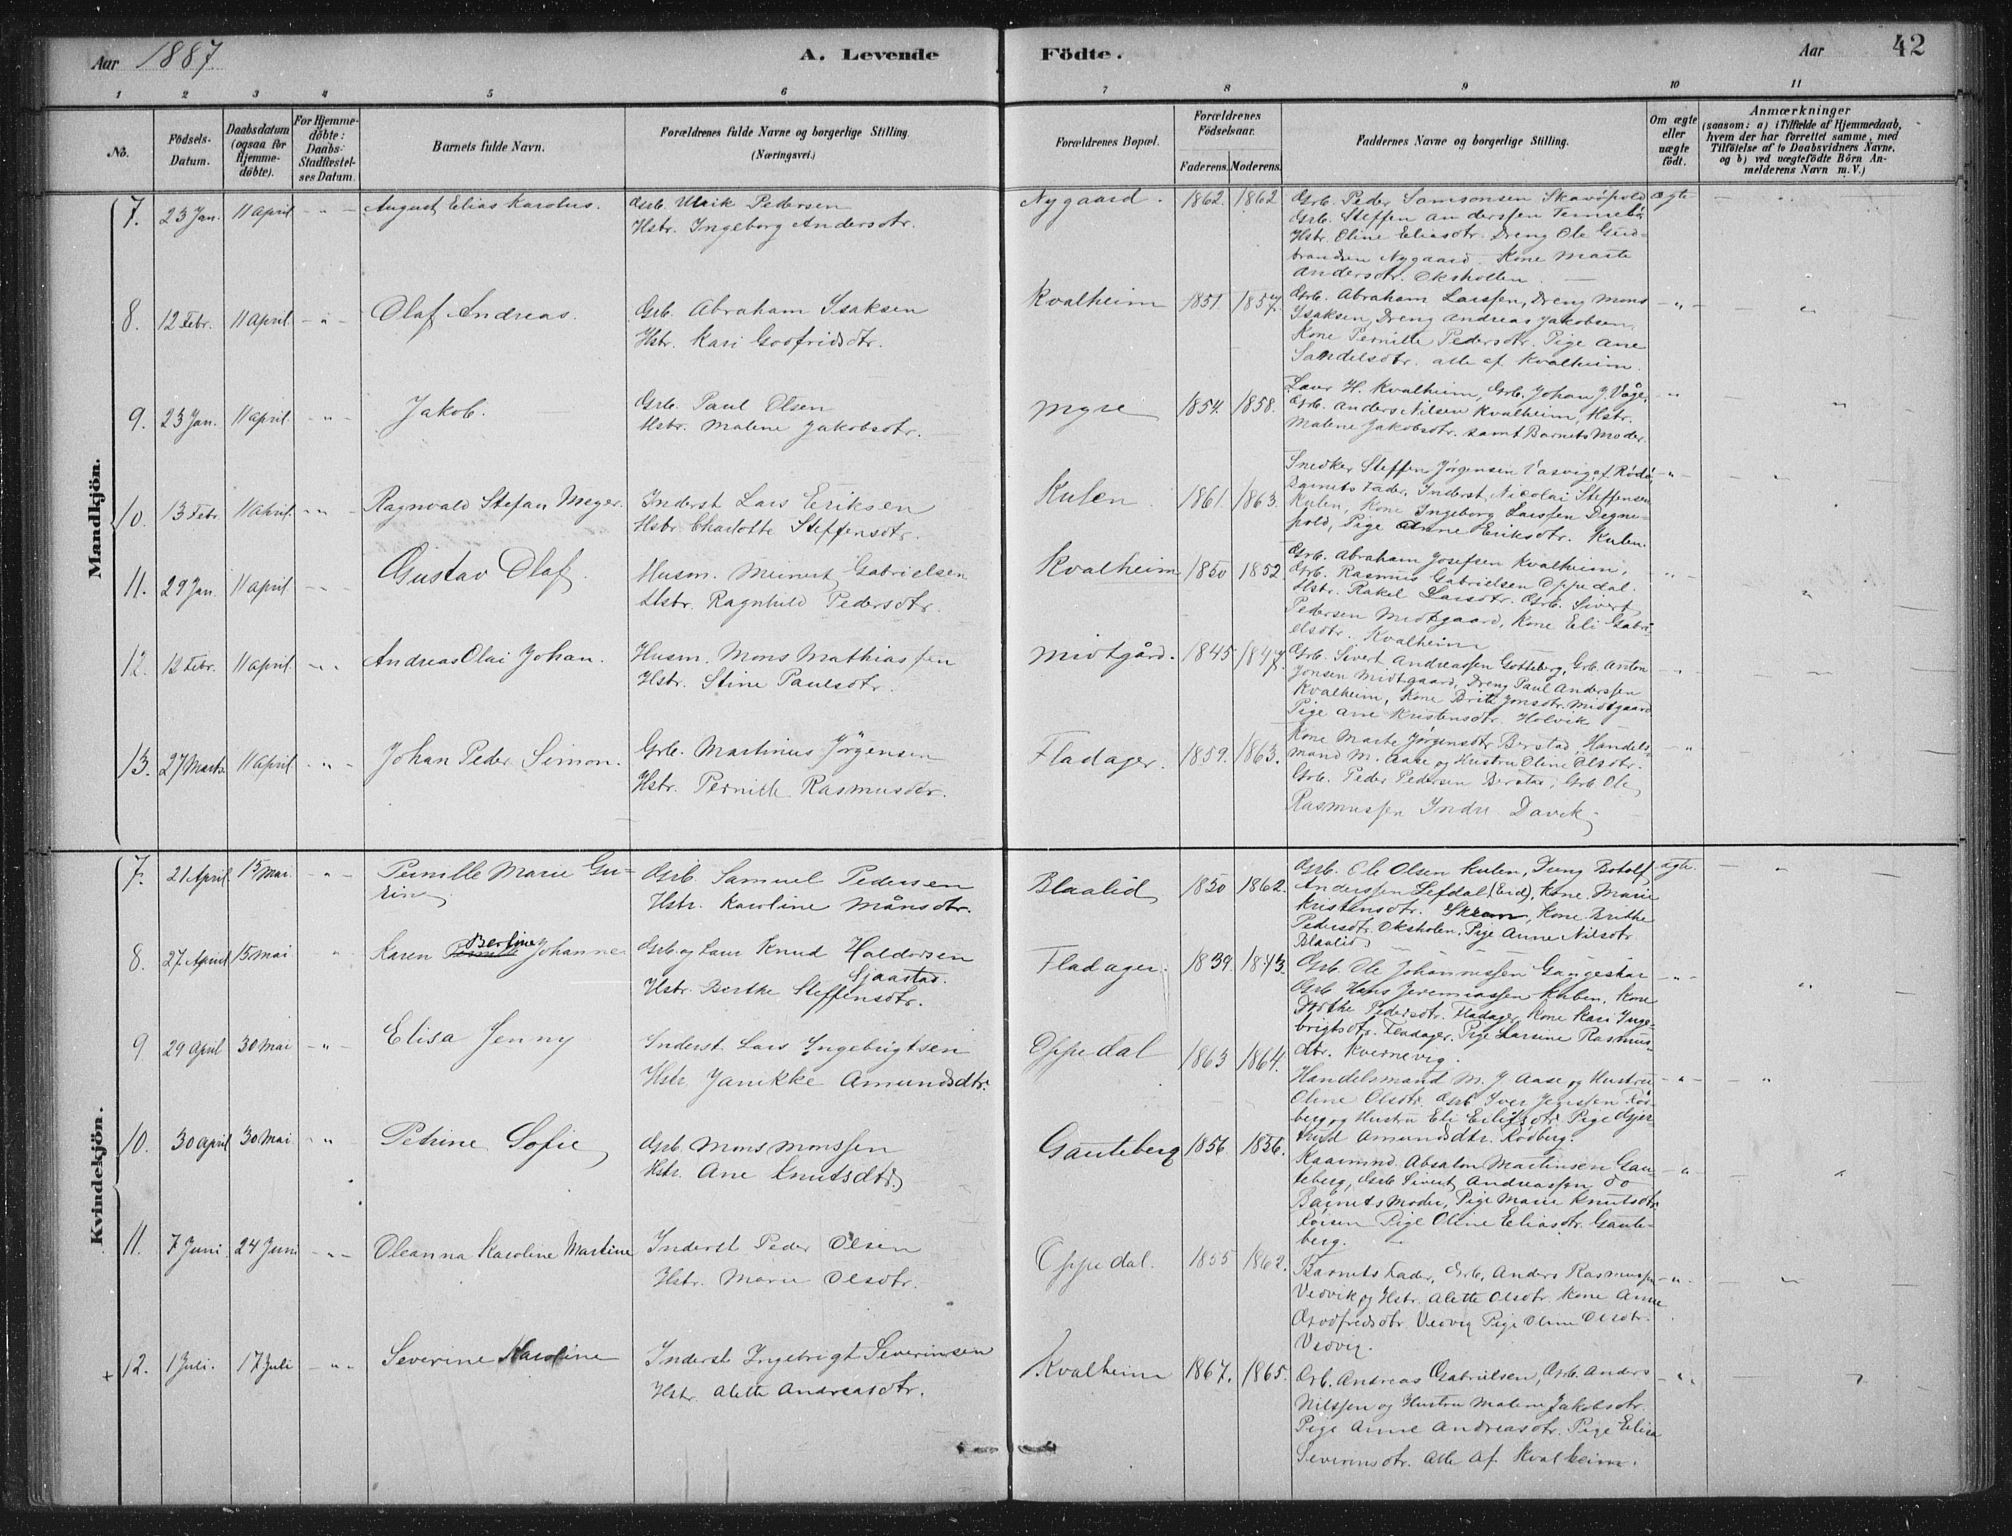 Aar 1887 A. Levende Födte. Aar 42
1 2 3 4 5 6 7 8 9 10 11
No. Födsels-Datum. Daabsdatum (ogsaa for Hjemme-døbte). For Hjemme-döbte: Daabs-Stadfæstel-ses Datum. Barnets fulde Navn. Forældrenes fulde Navne og borgerlige Stilling. (Næringsvei.) Forældrenes Bopæl. Forældrenes Födselsaar. Faderens. Moderens. Faddernes Navne og borgerlige Stilling. Om ægte eller uægte födt. Anmærkninger (saasom: a) i Tilfælde af Hjemmedaab, hvem der har forrettet samme, med Tilföielse af to Daabsvidners Navne, og b) ved uægtefödte Börn An-melderens Navn m. V.)
Mandkjön.
7. 23 Jan. 11 April - " - August Elias Karolus. Grb. Ulrik Pedersen Nygaard. 1862. 1862 Grb. Peder Samsonsen ægte
Hstr. Ingeborg Andersdtr. Grb. Steffen Anderssen
Hstr. Oline Eliasdtr. Dreng Ole Gud-
brandsen Nygaard. Kone Marte
Andersdtr. Oksholen
8. 12 Febr. 11 April - " - Olaf Andreas. Grb. Abraham Isaksen Kvalheim 1851. 1857. Grb. Abraham Larssen, Dreng Mons - " -
Hstr. Kari Godfridsdtr. Isaksen, Dreng Andreas Jakobsen,
Kone Pernille Pedersdtr. Pige Ane
Sandelsdtr. alle af Kvalheim.
9. 23 Jan. 11 April. - " - Jakob. Grb. Paul Olsen Myre 1854. 1858. Laur H. Kvalheim, Grb. Johan J. Våge, "
Hstr. Malene Jakobsdtr. Grb. Anders Nilsen Kvalheim, Hstr.
Malene Jakobsdtr. samt Barnets Moder.
10. 13 Febr. 11 April. - " - Ragnvald Stefan Meyer. Inderst Lars Eriksen Kulen 1861. 1863. Snedker Steffen Jørgensen Vasvig af - " -
Hstr. Charlotte Steffensdtr. Barnets Fader, Inderst Nicolai Steffensen
Kulen, Kone Ingeborg Larssen Degne-
pold, Pige Anne Eriksdtr. Kulen.
11. 29 Jan. 11 April - " - Gustav Olaf. Husm. Meinert Gabrielsen Kvalheim 1850 1852 Grb. Abraham Josefsen Kvalheim, - " -
Hstr. Ragnhild Pedersdtr. Grb. Rasmus Gabrielsen Oppedal.
Hstr. Rakel Larsdtr. Grb. Sivert
Pedersen Midtgaard, Kone Eli Gabri-
elsdtr. Kvalheim
12. 12 Febr. 11 April. - " - Andreas Olai Johan. Husm. Mons Mathiassen Midtgård. 1845 1847. Grb. Sivert Andreassen Gotteberg, Grb. Anton - " -
Hstr. Stine Paulsdtr. Jonsen Midtgaard, Dreng Paul Anderssen
Kvalheim, Kone Brite Jonsdtr. Midtgaard
Pige Ane Kristensdtr. Holvik
13. 27 Marts. 11 April - " - Johan Peder Simon. Grb. Martinus Jørgensen Fladager. 1859. 1863. Kone Marte Jørgensdtr. Berstad, Handels- - " -
Hstr. Pernille Rasmusdtr. mand M. Aase og Hustru Oline Olsdtr.
Grb. Peder Pedersen Berstad, Grb. Ole
Rasmussen Indre Davik
Kvindekjön.
7. 21 April 15 Mai. - " - Pernille Marie Gu- Grb. Samuel Pedersen Blaalid 1850 1862. Grb. Ole Olsen Kulen, Dreng Botolf ægte.
rine Hstr. Karoline Månsdtr. Anderssen Lefdal (Eid), Kone Marie
Kristensdtr. Skram, Kone Brithe
Pedersdtr. Oksholen, Pige Anne Nilsdtr.
Blaalid
8. 27 April 15 Mai " Karen Bertine Johanne Grb. og Laur Knud Haldorsen Fladager. 1839. 1843. Grb. Ole Johannessen Gangeskar - " -
Sjaastad. Grb. Hans Jeremiassen Kulen, Kone
Hstr. Berthe Steffensdtr. Dorthe Pedersdtr. Fladager, Kone Kari Inge-
brigtsdtr. Fladager, Pige Larsine Rasmus-
9 29 April 30 Mai - " - Elisa Jenny Inderst Lars Ingebrigtsen Oppedal 1863 1864. dtr. Kvernevig.
Hstr. Janikke Amundsdtr. Handelsmand M. J. Aase og Hustru - " -
Oline Olsdtr. Grb. Iver Rød-
berg og Hustru Eli Pige Gjer-
10. 30 April 30 Mai - " Petrine Sofie Grb. Mons Monssen Gauteberg 1856. 1856. trud Amundsdtr. Rødberg.
Hstr. Ane Knutsdtr. Kaarmnd. Absalon Martinsen Gau- - "
teberg, Grb. Sivert Andreassen do
Barnets Moder, Pige Marie Knutsdtr.
Pige Oline Eliasdtr. Gaute-
berg.
11. 7 Juni 24 Juni - " - Oleanna Karoline Martine Inderst Peder Olsen Oppedal. 1855 1862.
Hstr. Marie Olsdtr. Barnets Fader, Grb. Anders Rasmussen - " -
Vedvik og Hstr. Alette Olsdtr. Kone Anne
Godfredsdtr. Vedvig Pige Oline Olsdtr.
Vedvig.
+ 12. 1 Juli. 17 Juli - " - Severine Karoline Inderst Ingebrigt Severinsen Kvalheim 1867. 1865. Grb. Andreas Gabrielsen, Grb. Anders - " -
Hstr. Alette Andreasdtr. Nilssen og Hustru Malene Jakobsdtr.
Pige Anne Andreasdtr. Pige Elisa
Severinsdtr. Alle af Kvalheim.